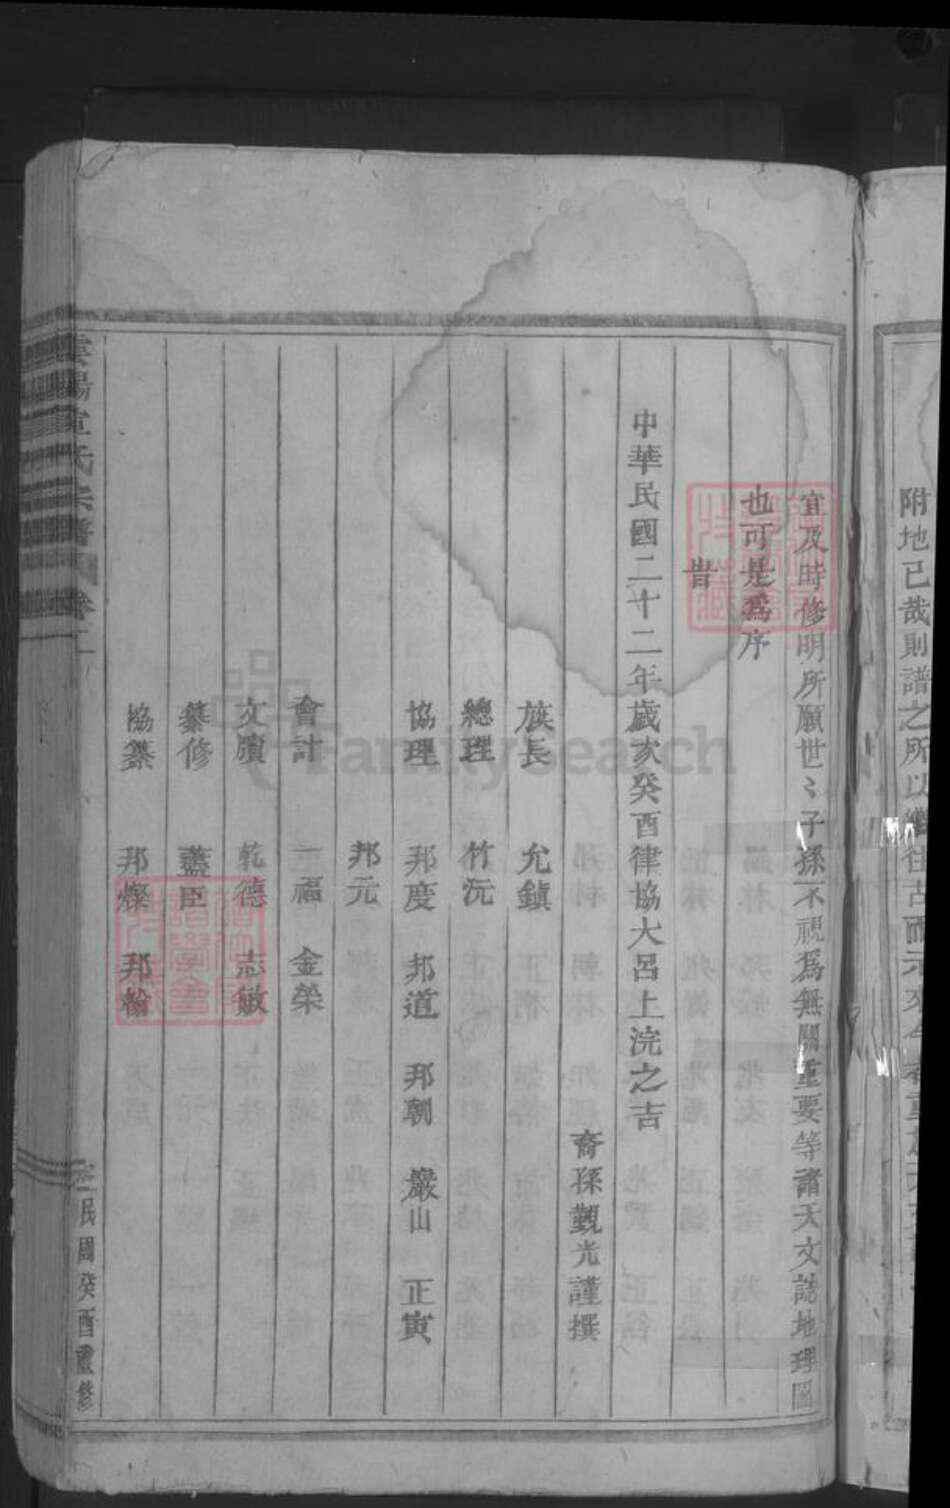 附地已哉則譜之所以
宜及時修明所願世〻子孫不視爲無關重要等諸天文誌地理圖
也可是爲序
旹
中華民國二十二年歲次癸酉律協大呂上浣之吉
裔孫觀光謹撰
族長 允鎮
總理 竹沅
協理 邦度 邦道 邦朝 巖山 正寅
邦元
會計 一福 金榮
文牘 乾德 志敏
纂修 藎臣
協纂 邦燦 邦翰
氏宗譜 卷二 民國癸酉重修
FamilySearch